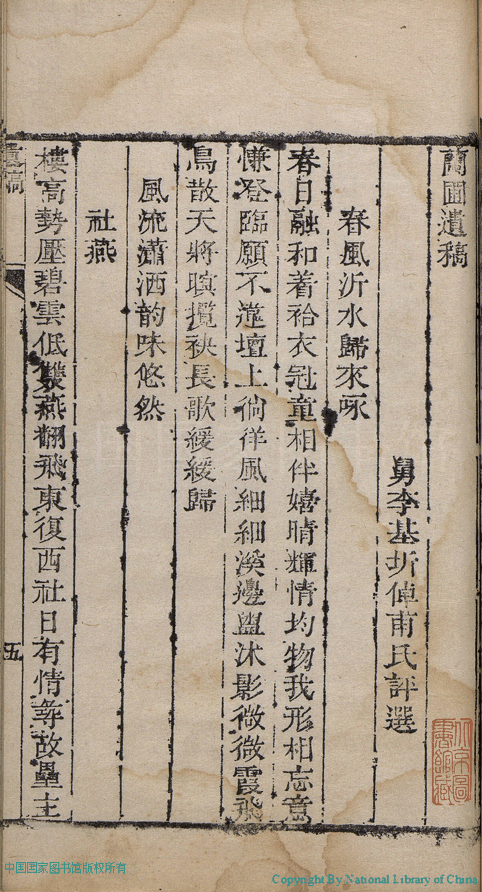 蘭圃遺稿
舅李基圻倬甫氏評選
春風沂水歸來咏
春日融和着袷衣冠童相伴嬉晴輝情均物我形相忘意
慊登臨願不違壇上徜徉風細細溪邊盥沐影微微霞飛
鳥散天將暝攬袂長歌緩緩歸
風流瀟洒韵味悠然
社燕
樓高勢壓碧雲低雙燕翻飛東復西社日有情尋故壘主
遺稿
五
中国国家图书馆版权所有
Copyright By National Library of China